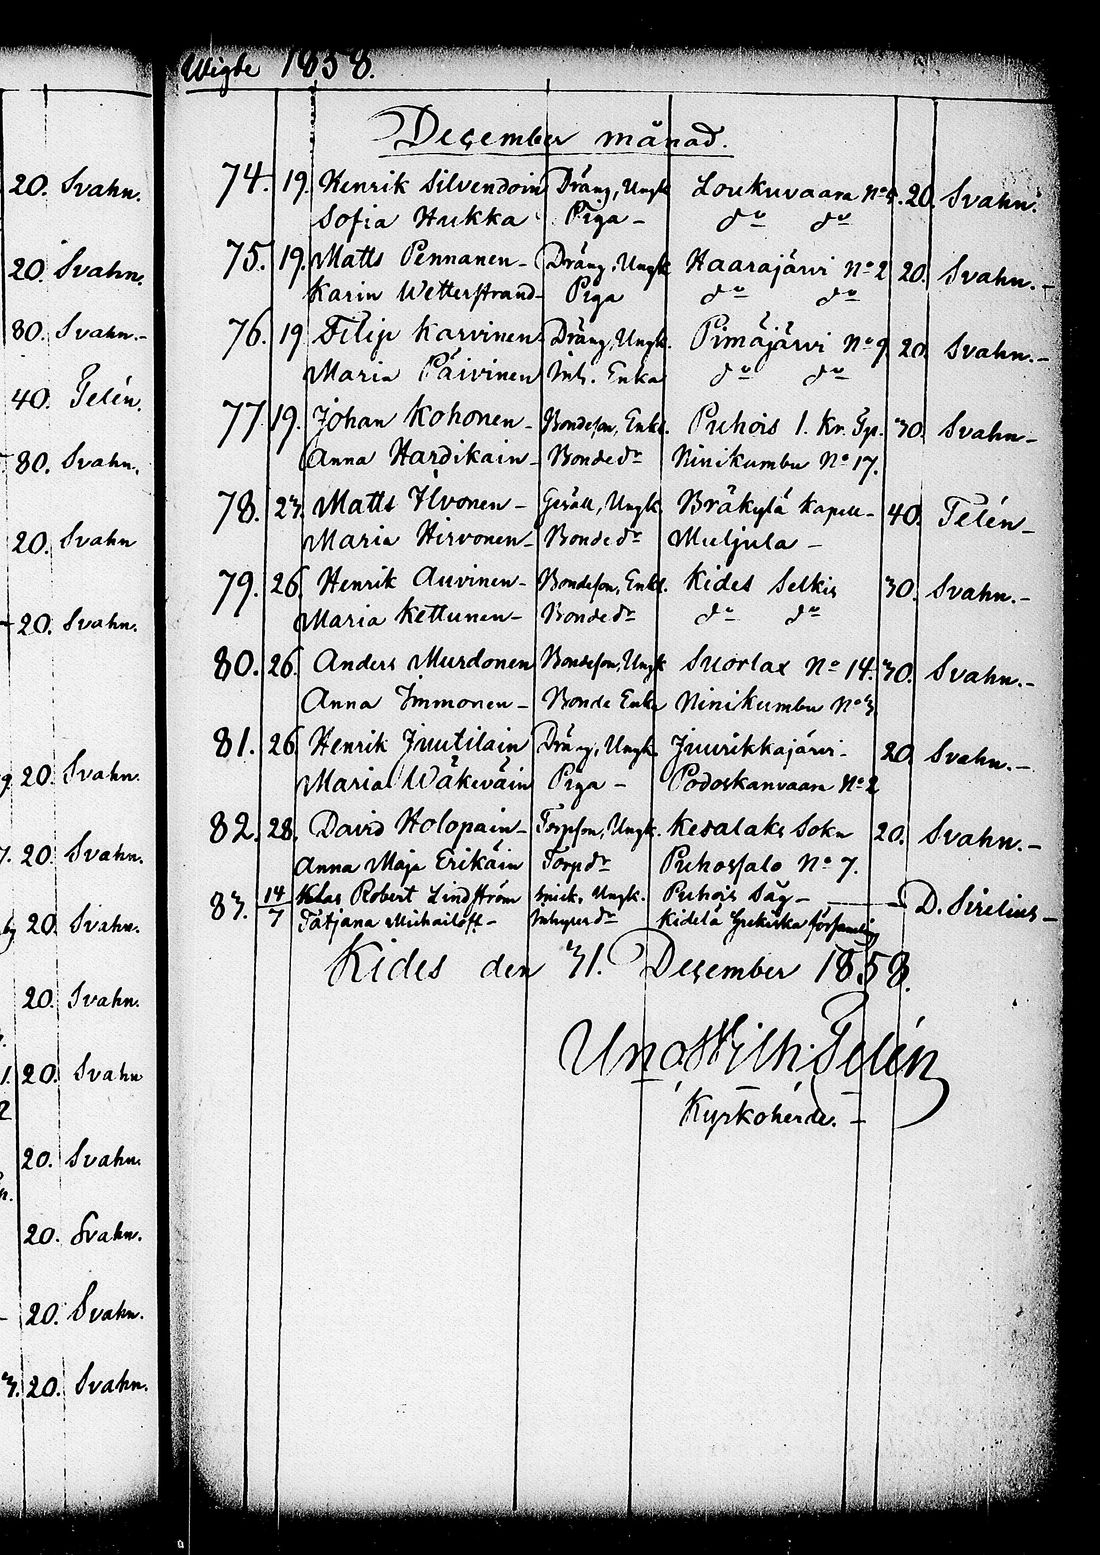 20. Svahn.
20. Svahn.
80. Svahn.-
40. Telén.
80. Svahn.
20. Svahn
20. Svahn.
20. Svahn.
20. Svahn.
20. Svahn.
20. Svahn.
20. Svahn
20. Svahn.
20. Svahn.
20. Svahn.
20. Svahn.
Wigde 1858.
December månad.
74. 19. Henrik Silvendoin Dräng, Ungk. Loukuvaara No 4. 20. Svahn.
Sofia Hukka Piga - do do
75. 19. Matts Pennanen - Dräng, Ungk. Haarajärvi No 2 20. Svahn.-
Karin Wetterstrand - Piga do do
76. 19 Filip Karvinen Dräng, Ungk. Pimäjärvi No 9 20. Svahn.-
Maria Päivinen Inh. Enka do do
77. 19. Johan Kohonen - Bondeson, Enkl. Puhois 1. Kr. Gp. 30. Svahn -
Anna Hardikain - Bonde dr Ninikumbu No 17.
78. 27. Matts Ilvonen - Gesäll, Ungk. Bräkylä Kapell - 40. Telén -
Maria Hirvonen - Bonde dr Muljula -
79. 26. Henrik Auvinen - Bondeson, Enkl. Kides Selkis 30. Svahn.-
Maria Kettunen - Bonde dr do do
80. 26. Anders Murdonen Bondeson, Ungk. Suorlax No 14. 30. Svahn.-
Anna Immonen - Bonde Enka Ninikumbu No 3.
81. 26. Henrik Juutilain Dräng, Ungk. Juurikkajärvi - 20. Svahn.-
Maria Wäkeväin Piga - Podoskanvaara No 2
82. 28. David Holopain - Torpson, Ungk. Kesalaks Sokn 20. Svahn.-
Anna Maja Erikäin Torp dr Puhossalo No 7.
83. 14/7 Klas Robert Lindström Snick. Ungk. Puhois Såg - D. Sirelius -
Tatjana Michailoff - Inhyses dr Kidelä Grekiska församling
Kides den 31. December 1858.
Uno Wilh. Telén
Kyrkoherde. -